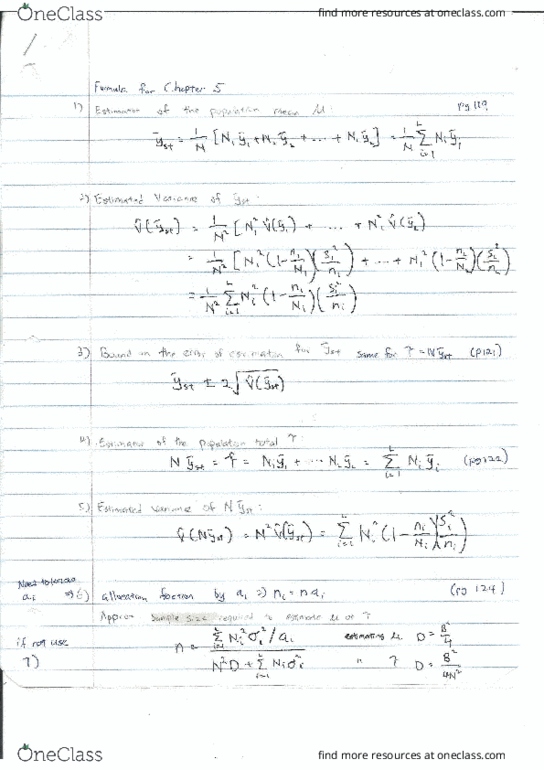 OneClass
find more resources at oneclass.com
Formula for Chapter 5
1) Estimator of the population mean μ: pg 119
ȳst = 1/N [N₁ȳ₁ + N₂ȳ₂ + ... + N_Lȳ_L] = 1/N Σ(i=1 to L) Niȳi
2) Estimated Variance of ȳst:
V̂(ȳst) = 1/N² [N₁² V̂(ȳ₁) + ... + N_L² V̂(ȳ_L)]
= 1/N² [N₁² (1 - n₁/N₁)(s₁²/n₁) + ... + N_L² (1 - n_L/N_L)(s_L²/n_L)]
= 1/N² Σ(i=1 to L) Ni² (1 - ni/Ni)(si²/ni)
3) Bound on the error of estimation for ȳst same for τ = Nȳst (p121)
ȳst ± 2√V̂(ȳst)
4) Estimator of the population total τ
Nȳst = τ̂ = N₁ȳ₁ + ... N_Lȳ_L = Σ(i=1 to L) Niȳi (pg 122)
5) Estimated variance of Nȳst:
V̂(Nȳst) = N² V̂(ȳst) = Σ(i=1 to L) Ni² (1 - ni/Ni)(si²/ni)
Need to know
ai → 6) allocation fraction by ai ⇒ ni = n ai (pg 124)
Approx sample size required to estimate μ or τ
if not use
7)
n = Σ(i=1 to L) Ni²σi²/ai / N²D + Σ(i=1 to L) Niσi²
estimating μ D = B²/4
" τ D = B²/4N²
OneClass
find more resources at oneclass.com